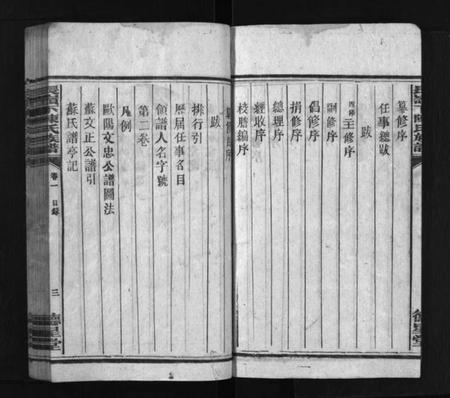 纂修序
任事總跋
跋
四錦主修序
嗣修序
倡修序
捐修序
總理序
經收序
校謄編序
跋
排行引
歷屆任事名目
領譜人名字號
第二卷
凡例
歐陽文忠公譜圖法
蘇文正公譜引
蘇氏譜亭記
卷一 目錄
三
德星堂